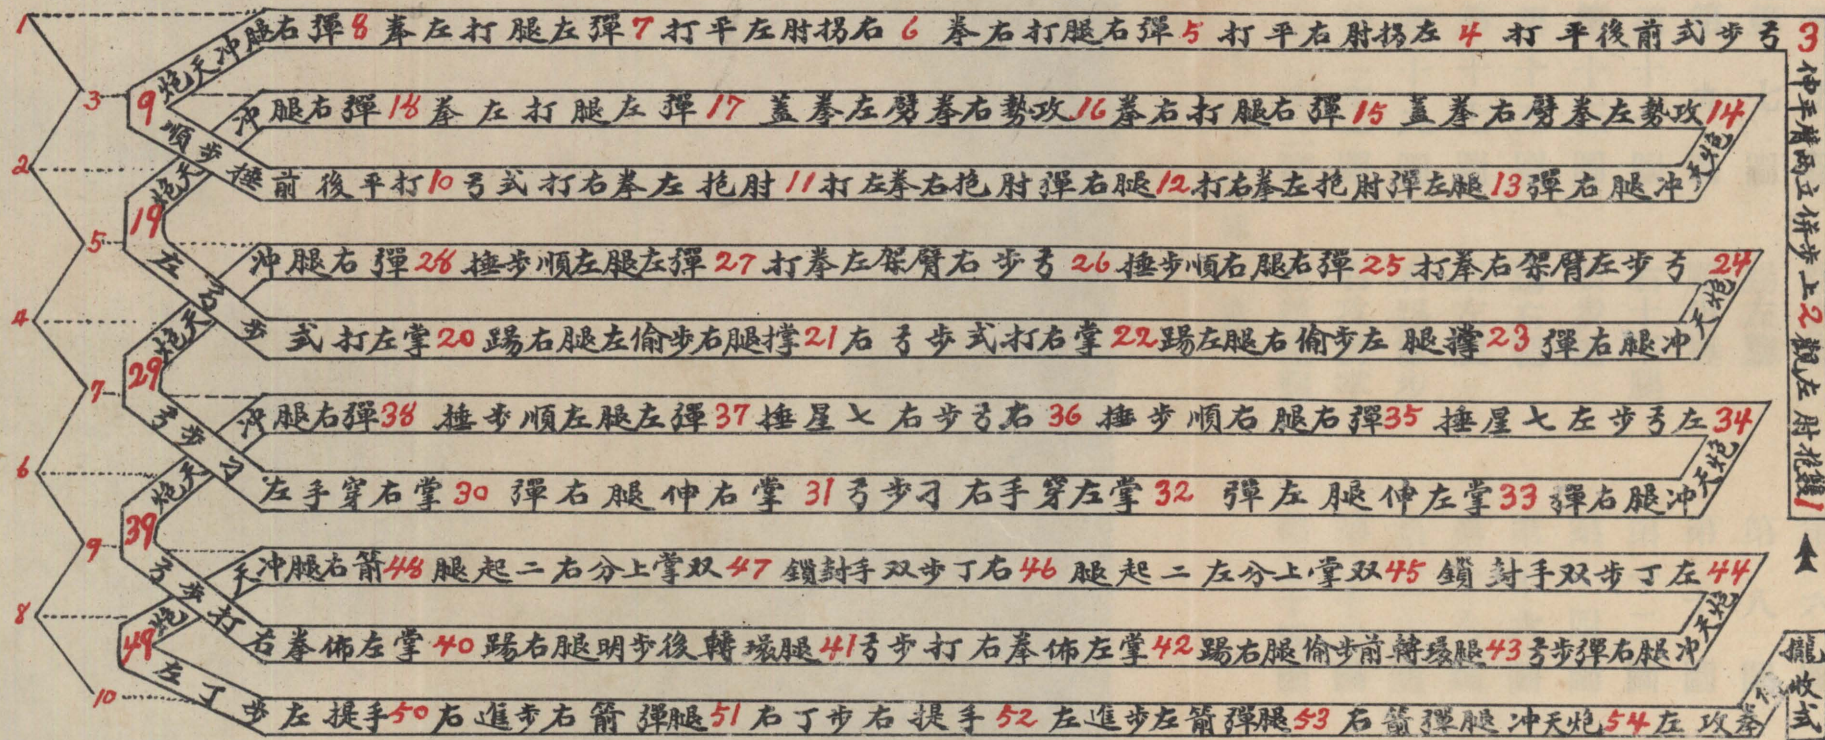 1雙抱肘左觀2上步併立兩臂平伸
3弓步式前後平打4左拐肘右平打5彈右腿打右拳6右拐肘左平打7彈左腿打左拳8彈右腿冲天炮
9順步捶前後平打10弓式打右拳左抱肘11打左拳右抱肘彈右腿12打右拳左抱肘彈左腿13彈右腿冲天炮
14攻勢左拳劈右拳蓋15彈右腿打右拳16攻勢右拳劈左拳蓋17彈左腿打左拳18彈右腿冲天炮
19左弓步式打左掌20踢右腿左偷步右腿撑21右弓步式打右掌22踢左腿右偷步左腿撑23彈右腿冲天炮
24弓步左臂架右拳打25彈右腿右順步捶26弓步右臂架左拳打27彈左腿左順步捶28彈右腿冲天炮
29弓步刁左手穿右掌30彈右腿伸右掌31弓步刁右手穿左掌32彈左腿伸左掌33彈右腿冲天炮
34左弓步左七星捶35彈右腿右順步捶36右弓步右七星捶37彈左腿左順步捶38彈右腿冲天炮
39弓步打右拳佈左掌40踢右腿明步後轉環腿41弓步打右拳佈左掌42踢右腿偷步前轉環腿43弓步彈右腿冲天炮
44左丁步双手封鎖45双掌上分左二起腿46右丁步双手封鎖47双掌上分右二起腿48箭右腿冲天炮
49左丁步左提手50右進步右箭彈腿51右丁步右提手52左進步左箭彈腿53右箭彈腿冲天炮54左攻拳
收式
1
3
2
5
4
7
6
9
8
10